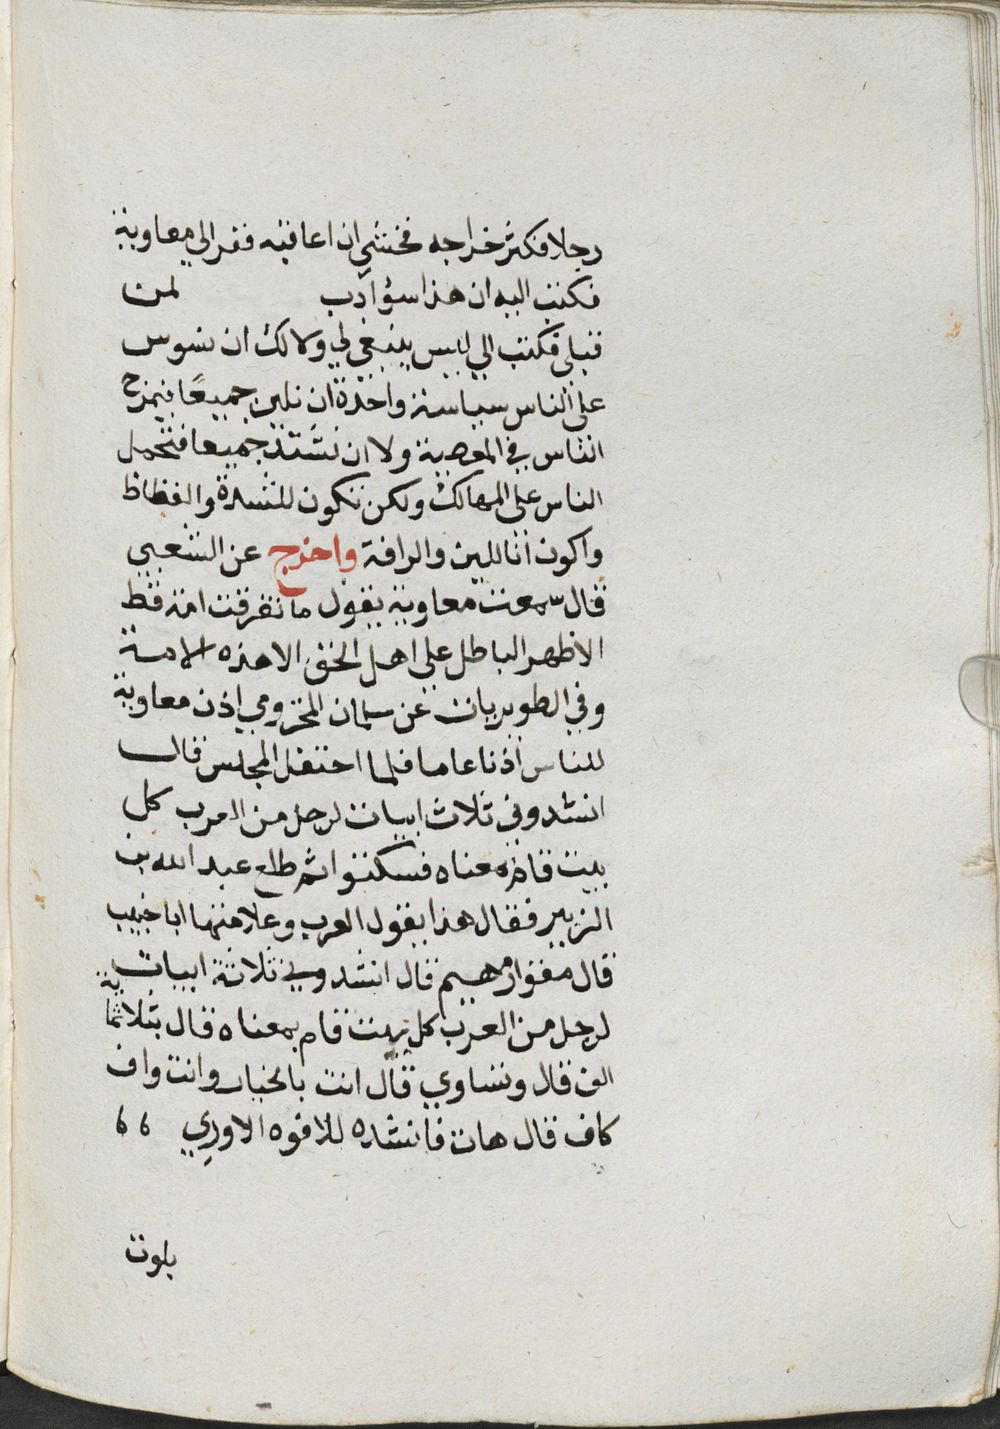 رجلا فكثر خراجه فخشي ان اعاقبه ففر الي معاوية
فكتبت اليه ان هذا اسؤ ادب لمن
قبلي فكتب الي ليس ينبغي لي ولا لك ان نسوس
على الناس سياسة واحدة ان نلين جميعًا فيمرح
الناس في المعصية ولا ان نشتد جميعا فنحمل
الناس على المهالك ولكن تكون للشدة والفظاظ
واكون انا للين والرافة واخرج عن الشعبي
قال سمعت معاوية يقول ما تفرقت امة قط
الا ظهر الباطل على اهل الحق الا هذه الامة
وفي الطويريات عن سليمان المخزومي اذن معاوية
للناس اذنا عاما فلما احتفل المجلس قال
انشدوني ثلاث ابيات لرجل من العرب كل
بيت قائم معناه فسكتوا ثم طلع عبد الله بن
الزبير فقال هذا يقول العرب وعلامتها ابا خبيب
قال مهيم قال انشدوني ثلاثة ابيات
لرجل من العرب كل بيت قام بمعناه قال بثلاثماية
الف قال وتساوي قال انت بالخيار وانت واف
كاف قال هات فانشده للافوه الاوري
بلوت